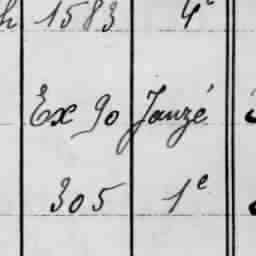 h 1583 4e
Ex 90 Janzé
305 1e